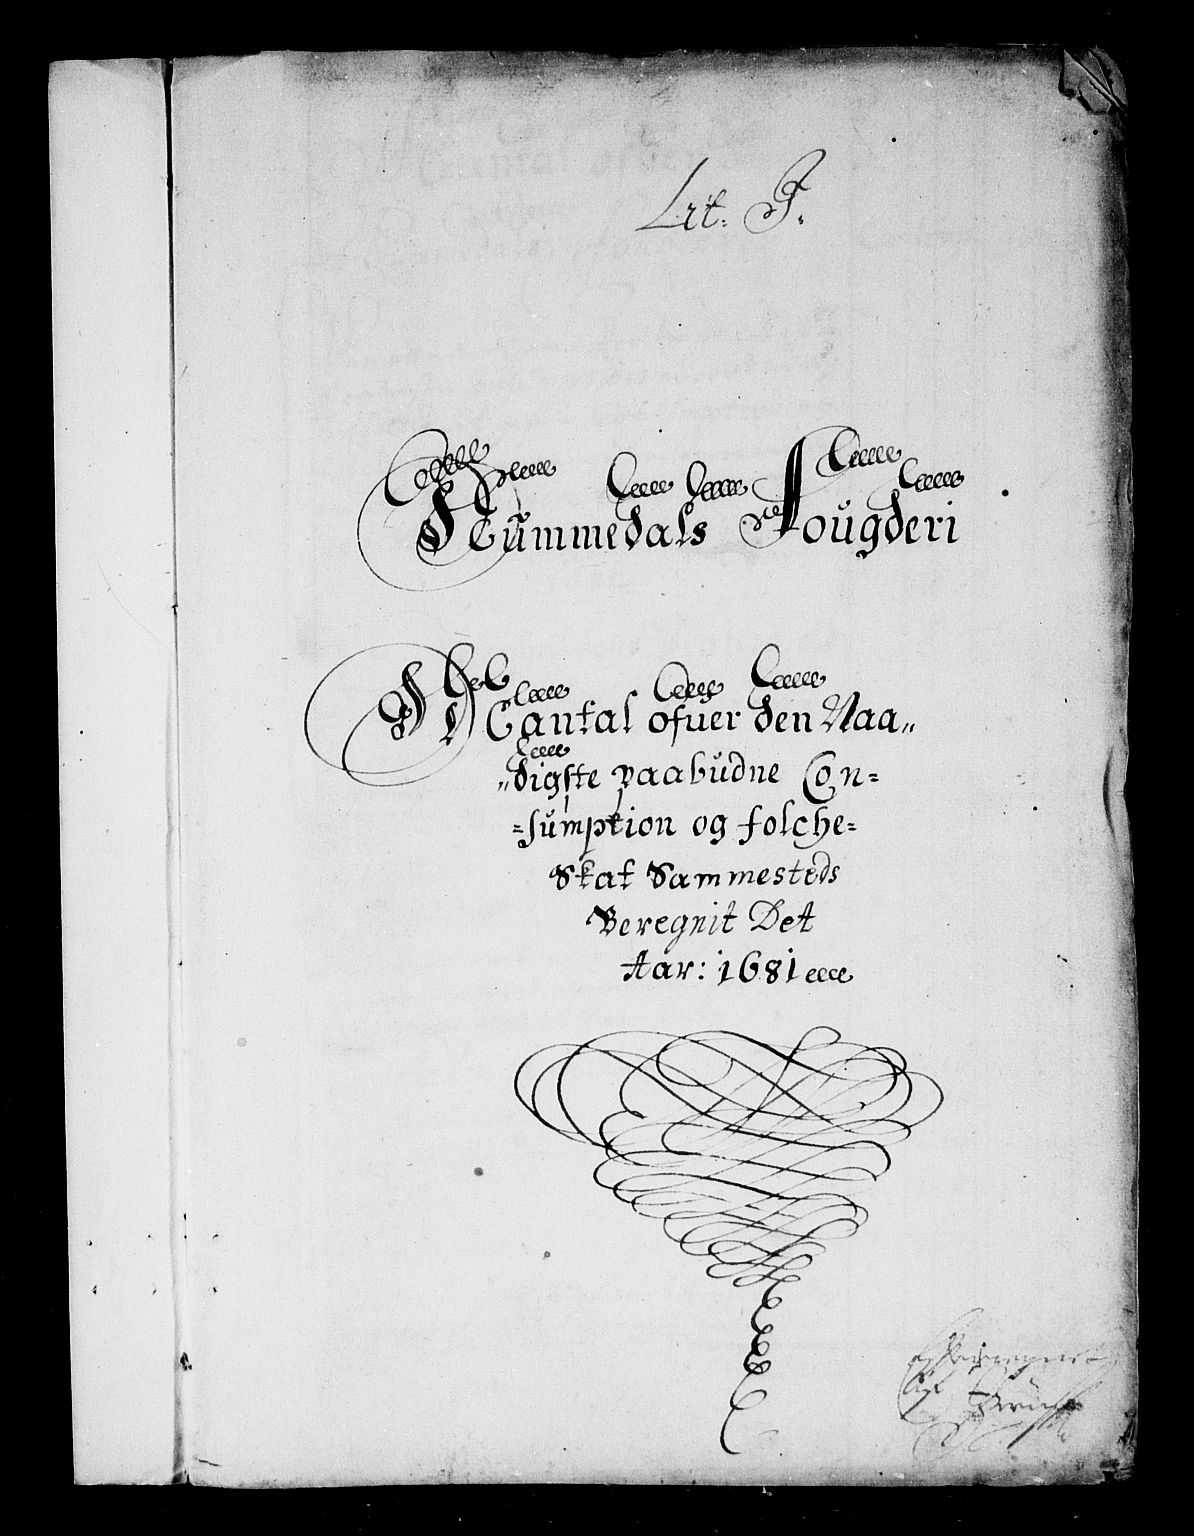 Lit: F.
Nummedals Fougderi
Mantal ofuer den Naa„
„digste paabudne Con=
=sumption og folche=
Skat Sammesteds
Beregnit Det
Aar: 1681